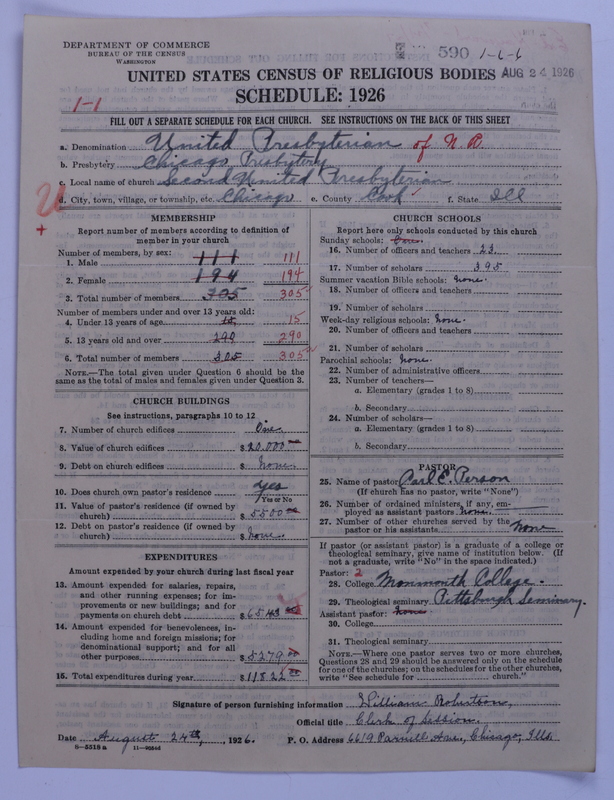 DEPARTMENT OF COMMERCE
BUREAU OF THE CENSUS
WASHINGTON
590 1-6-6
UNITED STATES CENSUS OF RELIGIOUS BODIES AUG 24 1926
SCHEDULE: 1926
1-1
FILL OUT A SEPARATE SCHEDULE FOR EACH CHURCH. SEE INSTRUCTIONS ON THE BACK OF THIS SHEET
a. Denomination United Presbyterian of N. A.
b. Presbytery Chicago Presbytery
c. Local name of church Second United Presbyterian
d. City, town, village, or township, etc. Chicago e. County Cook f. State Ill
MEMBERSHIP
Report number of members according to definition of member in your church
Number of members, by sex:
1. Male 111 111
2. Female 194 194
3. Total number of members 305 305
Number of members under and over 13 years old:
4. Under 13 years of age 15 15
5. 13 years old and over 290 290
6. Total number of members 305 305
NOTE.—The total given under Question 6 should be the same as the total of males and females given under Question 3.
CHURCH BUILDINGS
See instructions, paragraphs 10 to 12
7. Number of church edifices One
8. Value of church edifices $20.000 00
9. Debt on church edifices $ None
10. Does church own pastor's residence Yes
Yes or No
11. Value of pastor's residence (if owned by church) $5500 00
12. Debt on pastor's residence (if owned by church) $ None
EXPENDITURES
Amount expended by your church during last fiscal year
13. Amount expended for salaries, repairs, and other running expenses; for improvements or new buildings; and for payments on church debt $6543
14. Amount expended for benevolences, including home and foreign missions; for denominational support; and for all other purposes $5279 00
15. Total expenditures during year $11822 00
CHURCH SCHOOLS
Report here only schools conducted by this church
Sunday schools: One
16. Number of officers and teachers 23
17. Number of scholars 395
Summer vacation Bible schools: None
18. Number of officers and teachers
19. Number of scholars
Week-day religious schools: None.
20. Number of officers and teachers
21. Number of scholars
Parochial schools: None
22. Number of administrative officers
23. Number of teachers—
a. Elementary (grades 1 to 8)
b. Secondary
24. Number of scholars—
a. Elementary (grades 1 to 8)
b. Secondary
PASTOR
25. Name of pastor Carl E. Person
(If church has no pastor, write "None")
26. Number of ordained ministers, if any, employed as assistant pastors None
27. Number of other churches served by the pastor or his assistants None
If pastor (or assistant pastor) is a graduate of a college or theological seminary, give name of institution below. (If not a graduate, write "No" in the space indicated.)
Pastor: 2
28. College Monmouth College.
29. Theological seminary Pittsburgh Seminary.
Assistant pastor: None
30. College
31. Theological seminary
NOTE.—Where one pastor serves two or more churches, Questions 28 and 29 should be answered only on the schedule for one of the churches; on the schedules for the other churches, write "See schedule for church."
Signature of person furnishing information William Robertson,
Official title Clerk of Session.
Date August 24th, 1926. P. O. Address 6619 Parnell Ave., Chicago, Ills
8-5318 a